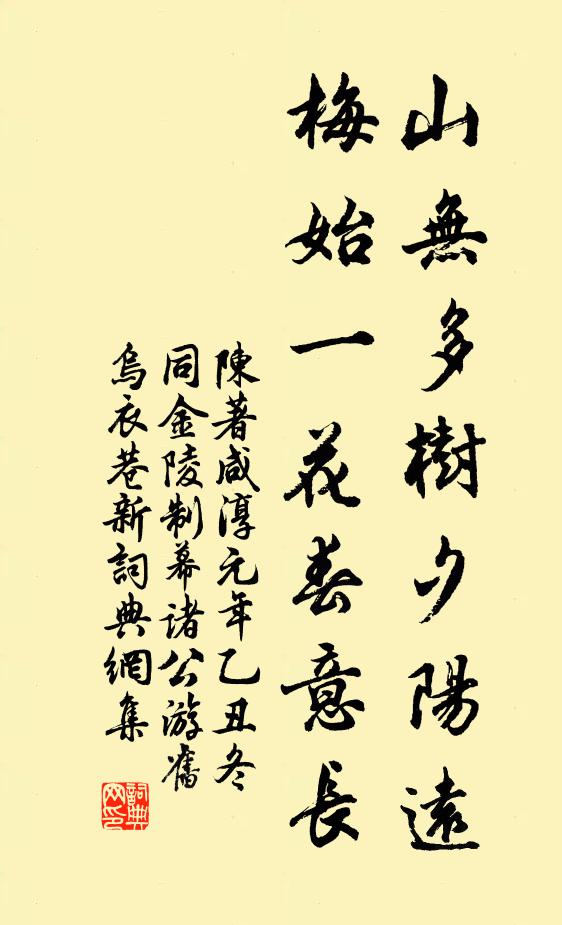 山無多樹夕陽遠
梅始一花春意長
陳著咸淳元年乙丑冬
同金陵制幕諸公游舊
烏衣巷新詞典網集
詞典
网印